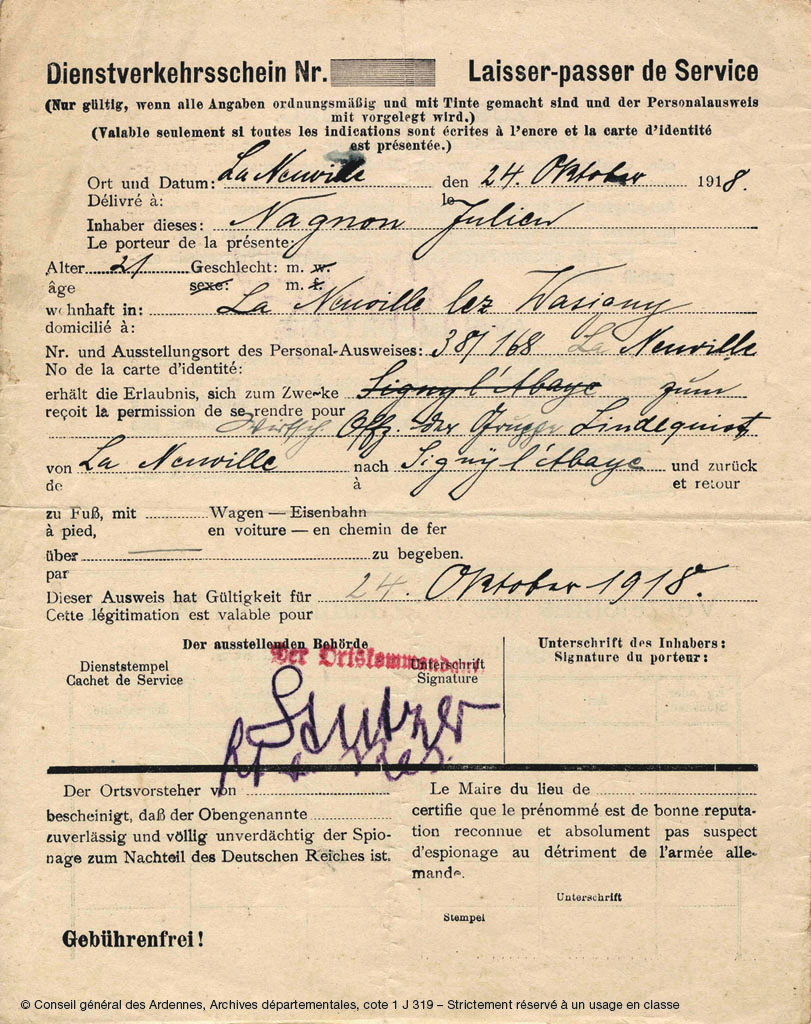 Dienstverkehrsschein Nr. Laisser-passer de Service
(Nur gültig, wenn alle Angaben ordnungsmäßig und mit Tinte gemacht sind und der Personalausweis
mit vorgelegt wird.)
(Valable seulement si toutes les indications sont écrites à l'encre et la carte d'identité
est présentée.)
Ort und Datum: La Neuville den 24. Oktober 1918.
Délivré à: le
Inhaber dieses: Nagnon Julien
Le porteur de la présente:
Alter 21 Geschlecht: m. w.
âge sexe: m. f.
wohnhaft in: La Neuville lez Wasigny
domicilié à:
Nr. und Ausstellungsort des Personal-Ausweises: 38/168 La Neuville
No de la carte d'identité:
erhält die Erlaubnis, sich zum Zwecke Signy l'Abaye zum
reçoit la permission de se rendre pour
Wirtsch. Offz. der Gruppe Lindequist
von La Neuville nach Signy l'Abaye und zurück
de à et retour
zu Fuß, mit Wagen — Eisenbahn
à pied, en voiture — en chemin de fer
über zu begeben.
par
Dieser Ausweis hat Gültigkeit für 24. Oktober 1918.
Cette légitimation est valable pour
Der ausstellenden Behörde Unterschrift des Inhabers:
Der Ortskommandant Signature du porteur:
Dienststempel Unterschrift
Cachet de Service Signature
Der Ortsvorsteher von Le Maire du lieu de
bescheinigt, daß der Obengenannte certifie que le prénommé est de bonne reputa-
zuverlässig und völlig unverdächtig der Spio- tion reconnue et absolument pas suspect
nage zum Nachteil des Deutschen Reiches ist. d'espionage au détriment de l'armée alle-
mande.
Unterschrift
Stempel
Gebührenfrei!
© Conseil général des Ardennes, Archives départementales, cote 1 J 319 – Strictement réservé à un usage en classe